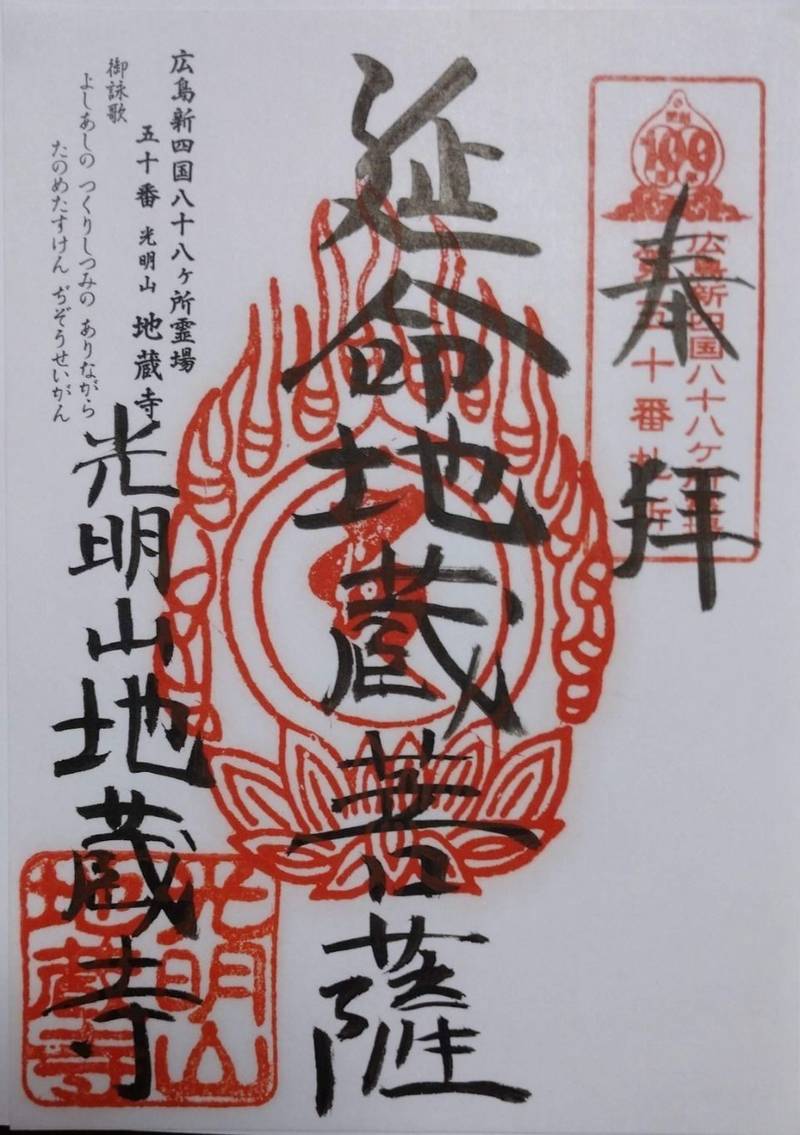 奉拝
開創
100
周年
広島新四国八十八ケ所霊場
第五十番札所
延命地蔵菩薩
広島新四国八十八ヶ所霊場
五十番 光明山 地蔵寺
御詠歌
よしあしの つくりしつみの ありながら
たのめたすけん ぢぞうせいがん
光明山地蔵寺
光明山
地蔵寺